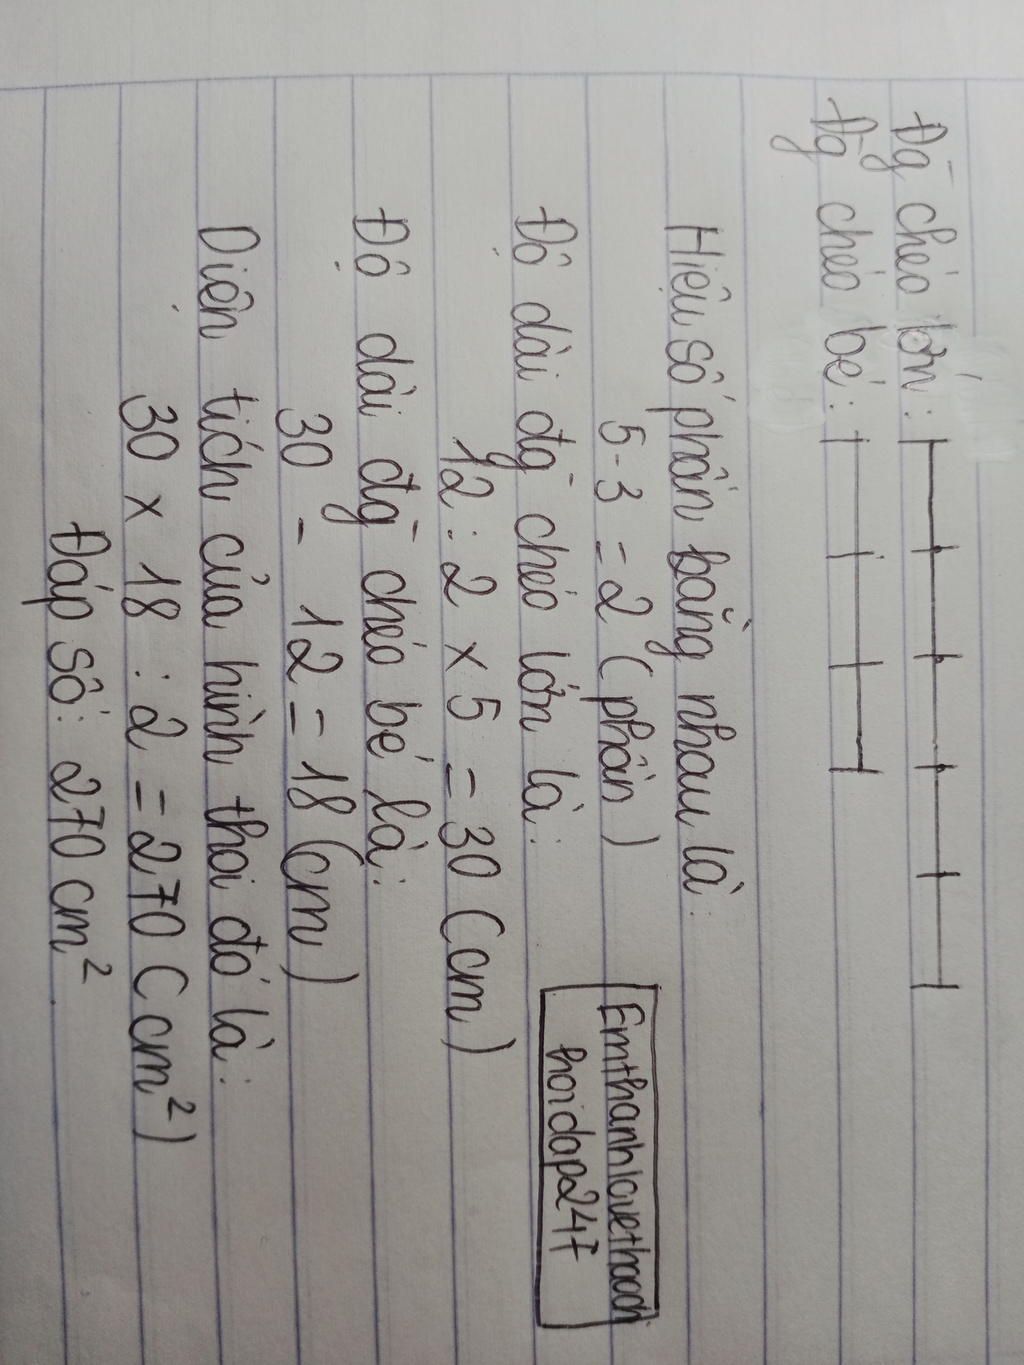 Đg̅ chéo lớn:
Đg̅ chéo bé:
Hiệu số phần bằng nhau là:
5-3 = 2 (phần)
Độ dài đg̅ chéo lớn là:
12 : 2 x 5 = 30 (cm)
Độ dài đg̅ chéo bé là:
30 - 12 = 18 (cm)
Diện tích của hình thoi đó là:
30 x 18 : 2 = 270 (cm²)
Đáp số: 270 cm²
Emthanhlovethaodi
hoidap247